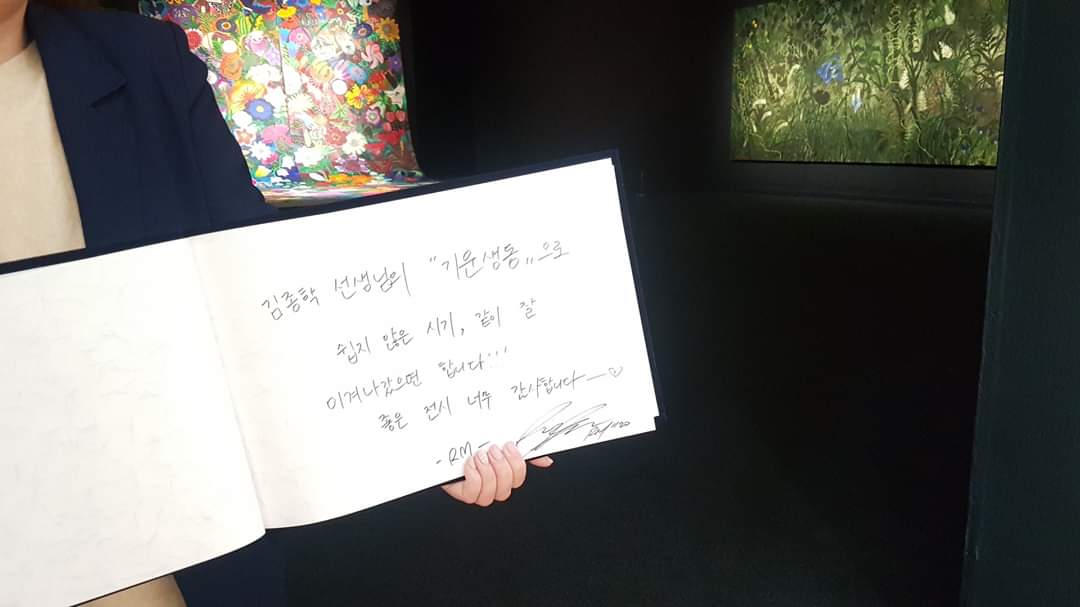 김종학 선생님의 "기운생동„으로
쉽지 않은 시기, 같이 잘
이겨나갔으면 합니다...
좋은 전시 너무 감사합니다—♡
-RM-